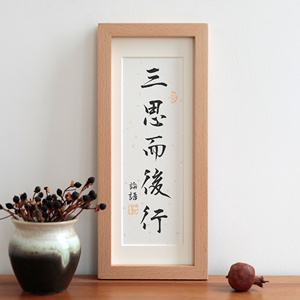 三思而後行
論語